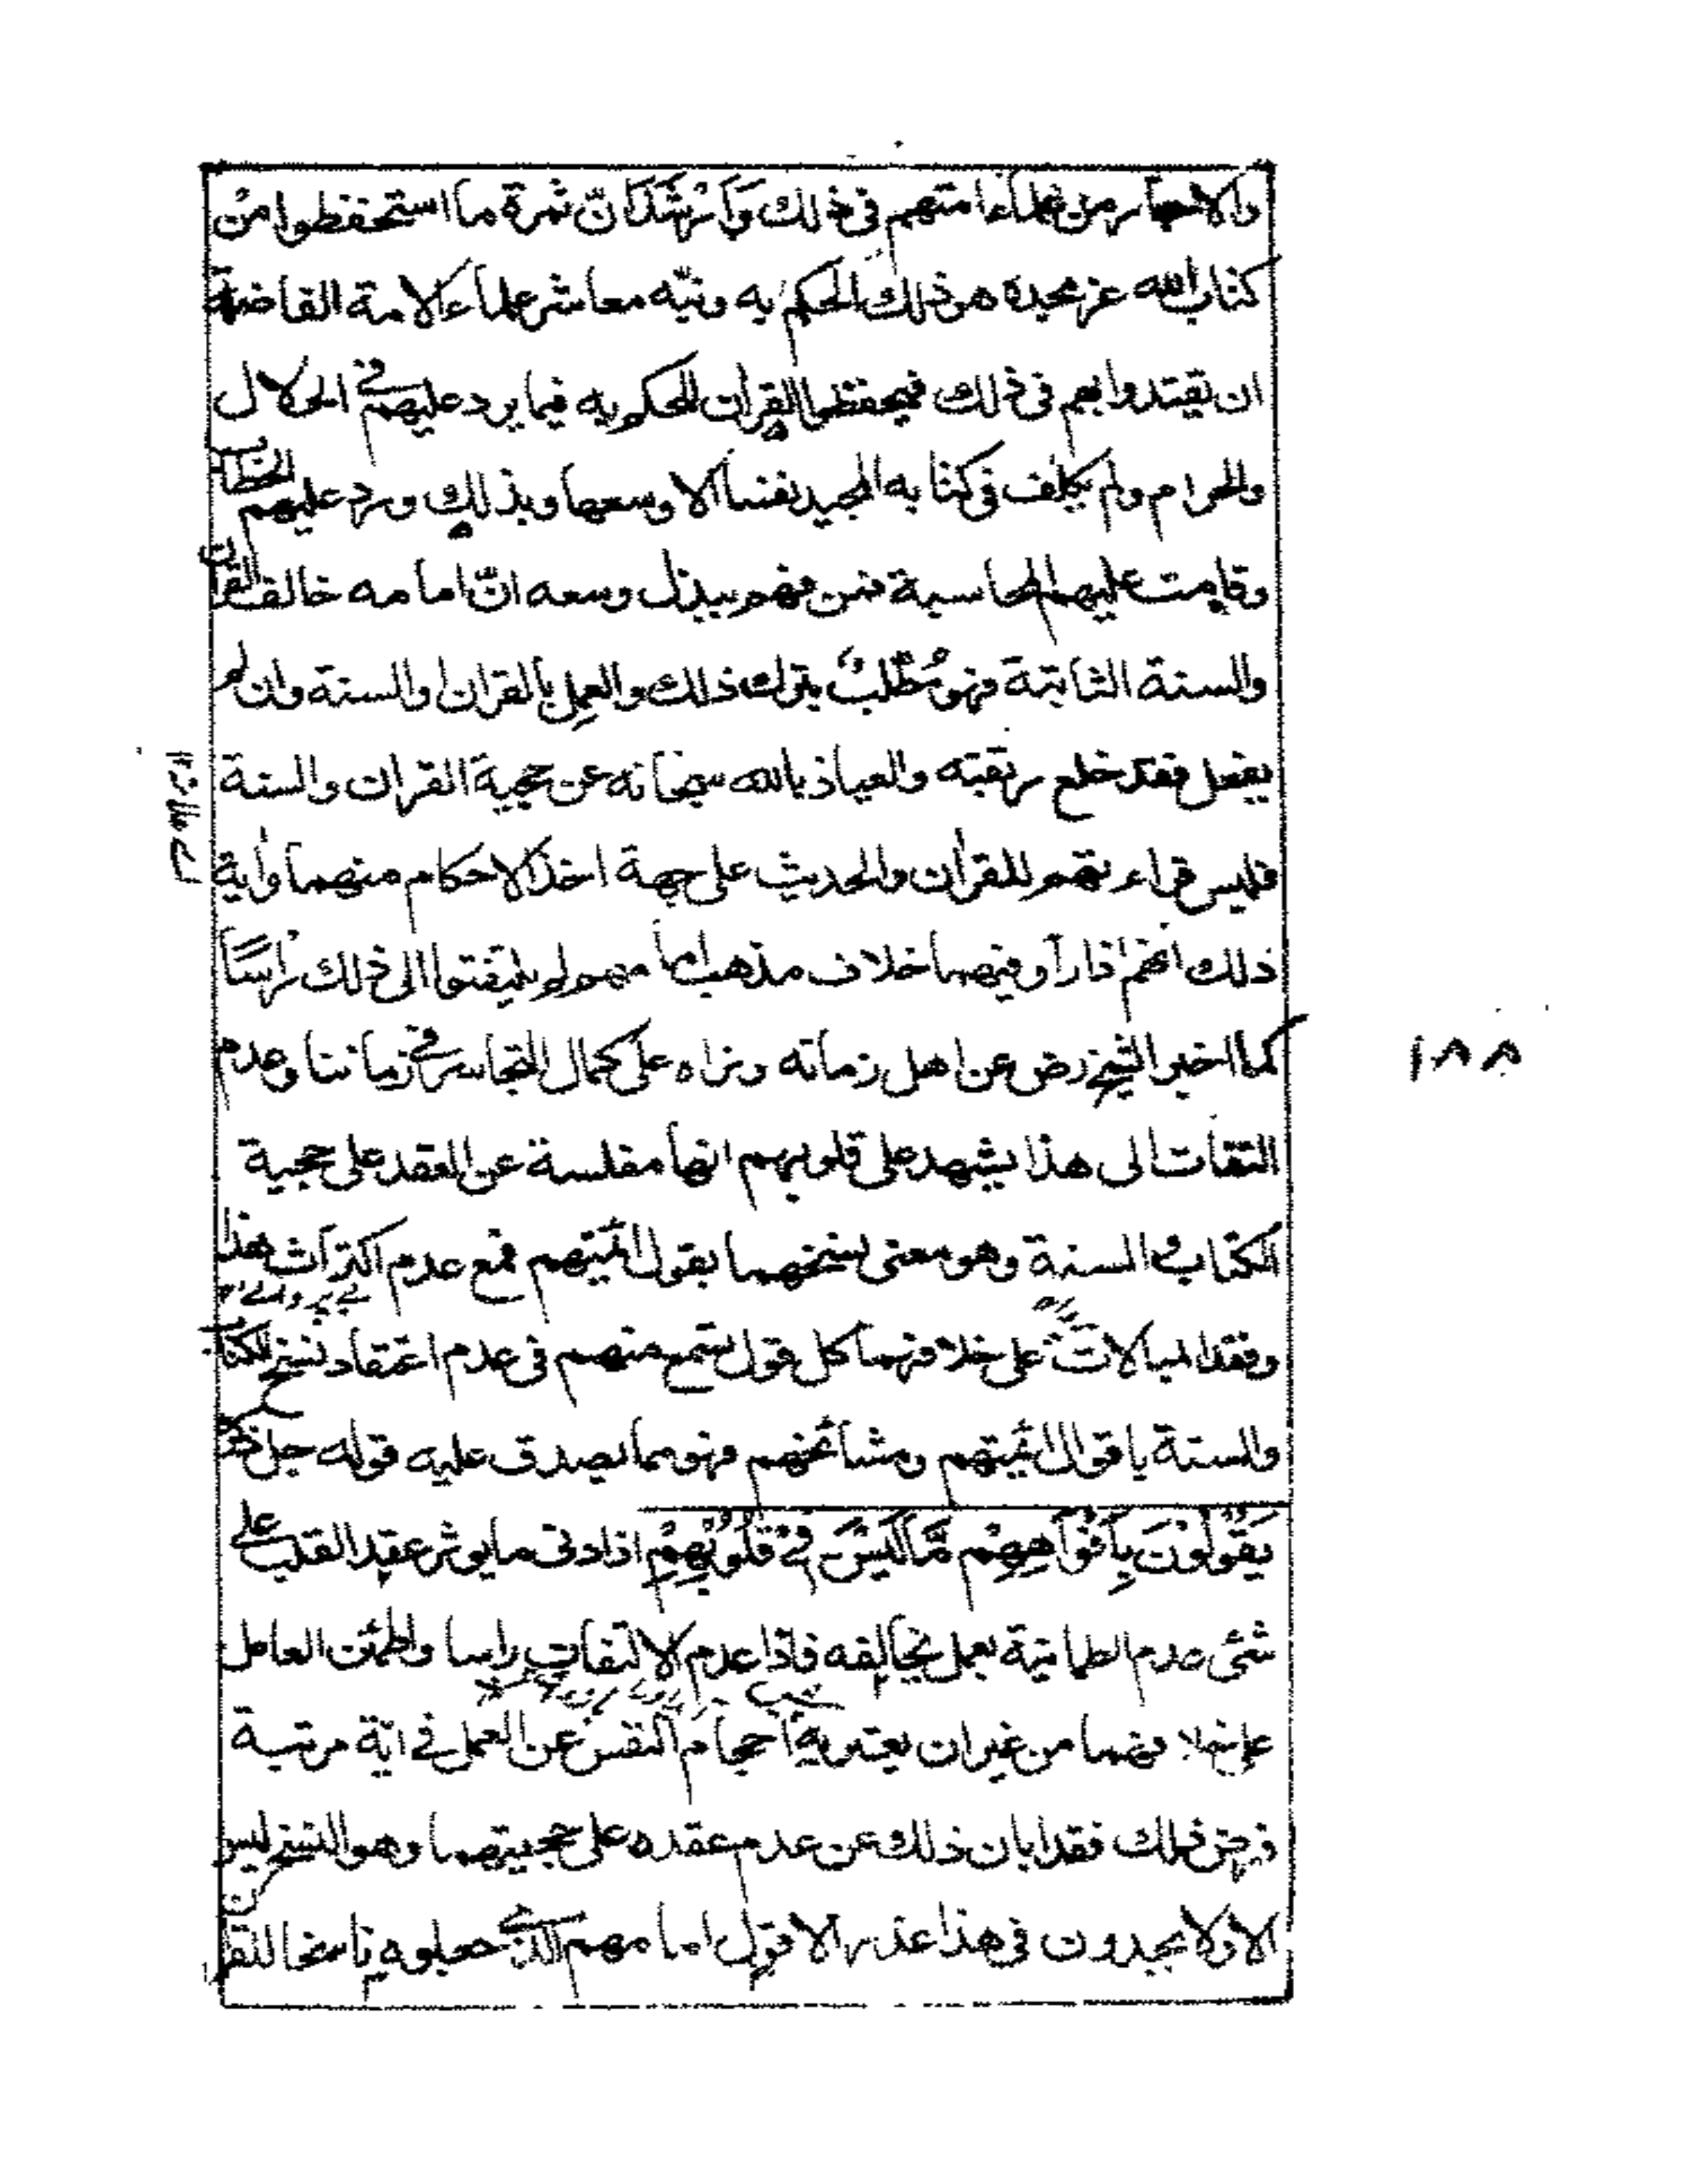 والاحبار من علماء امتهم في ذلك وَاَرْشَدَ اَنّ ثمرة ما استحفظوا مِنْ
كتاب الله عز مجده هو ذلك الحكم به ونبّه معاشر علماء الامة الفاضلة
ان يقتدوا بهم في ذلك فيحفظوا القرآن للحكم به فيما يرد عليهم في الحلال
والحرام ولم يكلف في كتابه المجيد نفسا الا وسعها وبذلك ورد عليهم الخطاب
وقامت عليهم المحاسبة فمن فهم ببذل وسعه انّ امامه خالف القرآن
والسنة الثابتة فهو مُطَّلَبٌ بترك ذلك والعمل بالقران والسنة وان لم
يفعل فقد خلع ربقته والعياذ بالله سبحانه عن حجية القرآن والسنة
فليس قراءتهم للقرآن والحديث على جهة اخذ الاحكام منهما وآية
ذلك انهم اذا رأو فيهما خلاف مذهب امامهم لم يلتفتوا الى ذلك رَاْسًا
كما اخبر الشيخ رض عن اهل زمانه ونراه على كمال التجاسر في زماننا وعدم
التفات الى هذا يشهد على قلوبهم انها مفلسة عن العقد على حجية
الكتاب والسنة وهو معنى نسخهما بقول ائمتهم فمع عدم اكتراث بهذا
وفقد المبالات على خلافهما كل قول يسمع منهم في عدم اعتقاد نسخ الكتاب
والسنة باقوال ائمتهم ومشائخهم فهو مما يصدق عليه قوله جل ذكره
يَقُوْلُوْنَ بِاَفْوَاهِهِمْ مَّا لَيْسَ فِيْ قُلُوْبِهِمْ اذ ادنى ما يوثر عقد القلب على
شئى عدم الطمانية بعمل يخالفه فاذا عدم الالتفات راسا واطمئن العامل
على خلافهما من غير ان يعتريه احجام النفس عن العمل في اية مرتبة
فرض ذلك فقد ابان ذلك عن عدم عقده على حجيتهما وهو النسخ ليس
الا ولا يجدون في هذا عذرا الا قول امامهم الذي جعلوه ناسخا للقرآن
١٨٨